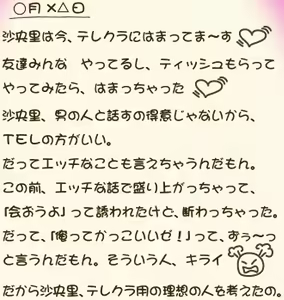 ○月×△日
沙央里は今、テレクラにはまってま〜す
友達みんな やってるし、ティッシュもらって
やってみたら、はまっちゃった
沙央里、男の人と話すの得意じゃないから、
TELの方がいい。
だってエッチなことも言えちゃうんだもん。
この前、エッチな話で盛り上がっちゃって、
「会おうよ」って誘われたけど、断わっちゃった。
だって、「俺ってかっこいいゼ!」って、ずぅ〜っ
と言うんだもん。そういう人、キライ
だから沙央里、テレクラ用の理想の人を考えたの。